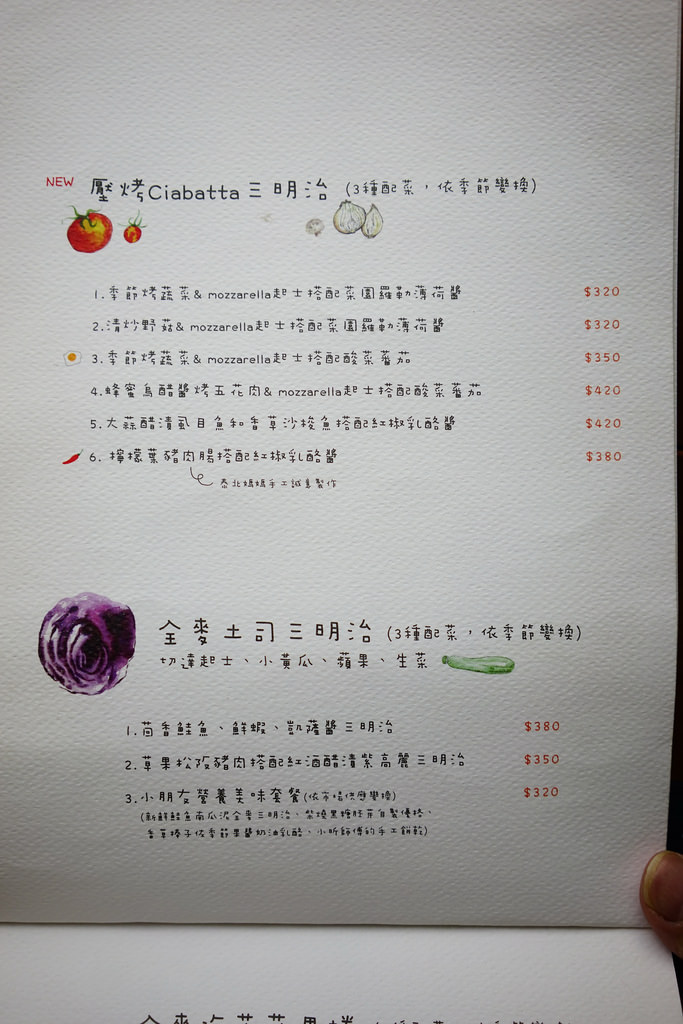 NEW 壓烤Ciabatta三明治 (3種配菜，依季節變換)
1.季節烤蔬菜& mozzarella起士搭配菜園羅勒薄荷醬 $320
2.清炒野菇& mozzarella起士搭配菜園羅勒薄荷醬 $320
3.季節烤蔬菜& mozzarella起士搭配酸菜蕃茄 $350
4.蜂蜜烏醋醬烤五花肉& mozzarella起士搭配酸菜蕃茄 $420
5.大蒜醋漬虱目魚和香草沙梭魚搭配紅椒乳酪醬 $420
6.檸檬葉豬肉腸搭配紅椒乳酪醬 $380
泰北媽媽手工誠意製作
全麥土司三明治 (3種配菜，依季節變換)
切達起士、小黃瓜、蘋果、生菜
1.茴香鮭魚、鮮蝦、凱薩醬三明治 $380
2.草果松阪豬肉搭配紅酒醋漬紫高麗三明治 $350
3.小朋友營養美味套餐(依市場供應變換) $320
(新鮮鮭魚南瓜泥全麥三明治、柴燒黑糖胚芽自製優格、
香草榛子依季節果醬奶油乳酪、小昕師傅的手工餅乾)